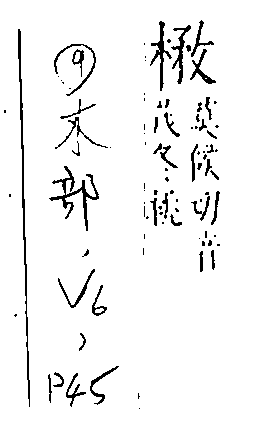 莫候切音
茂冬桃
⑨木部，V6，P45